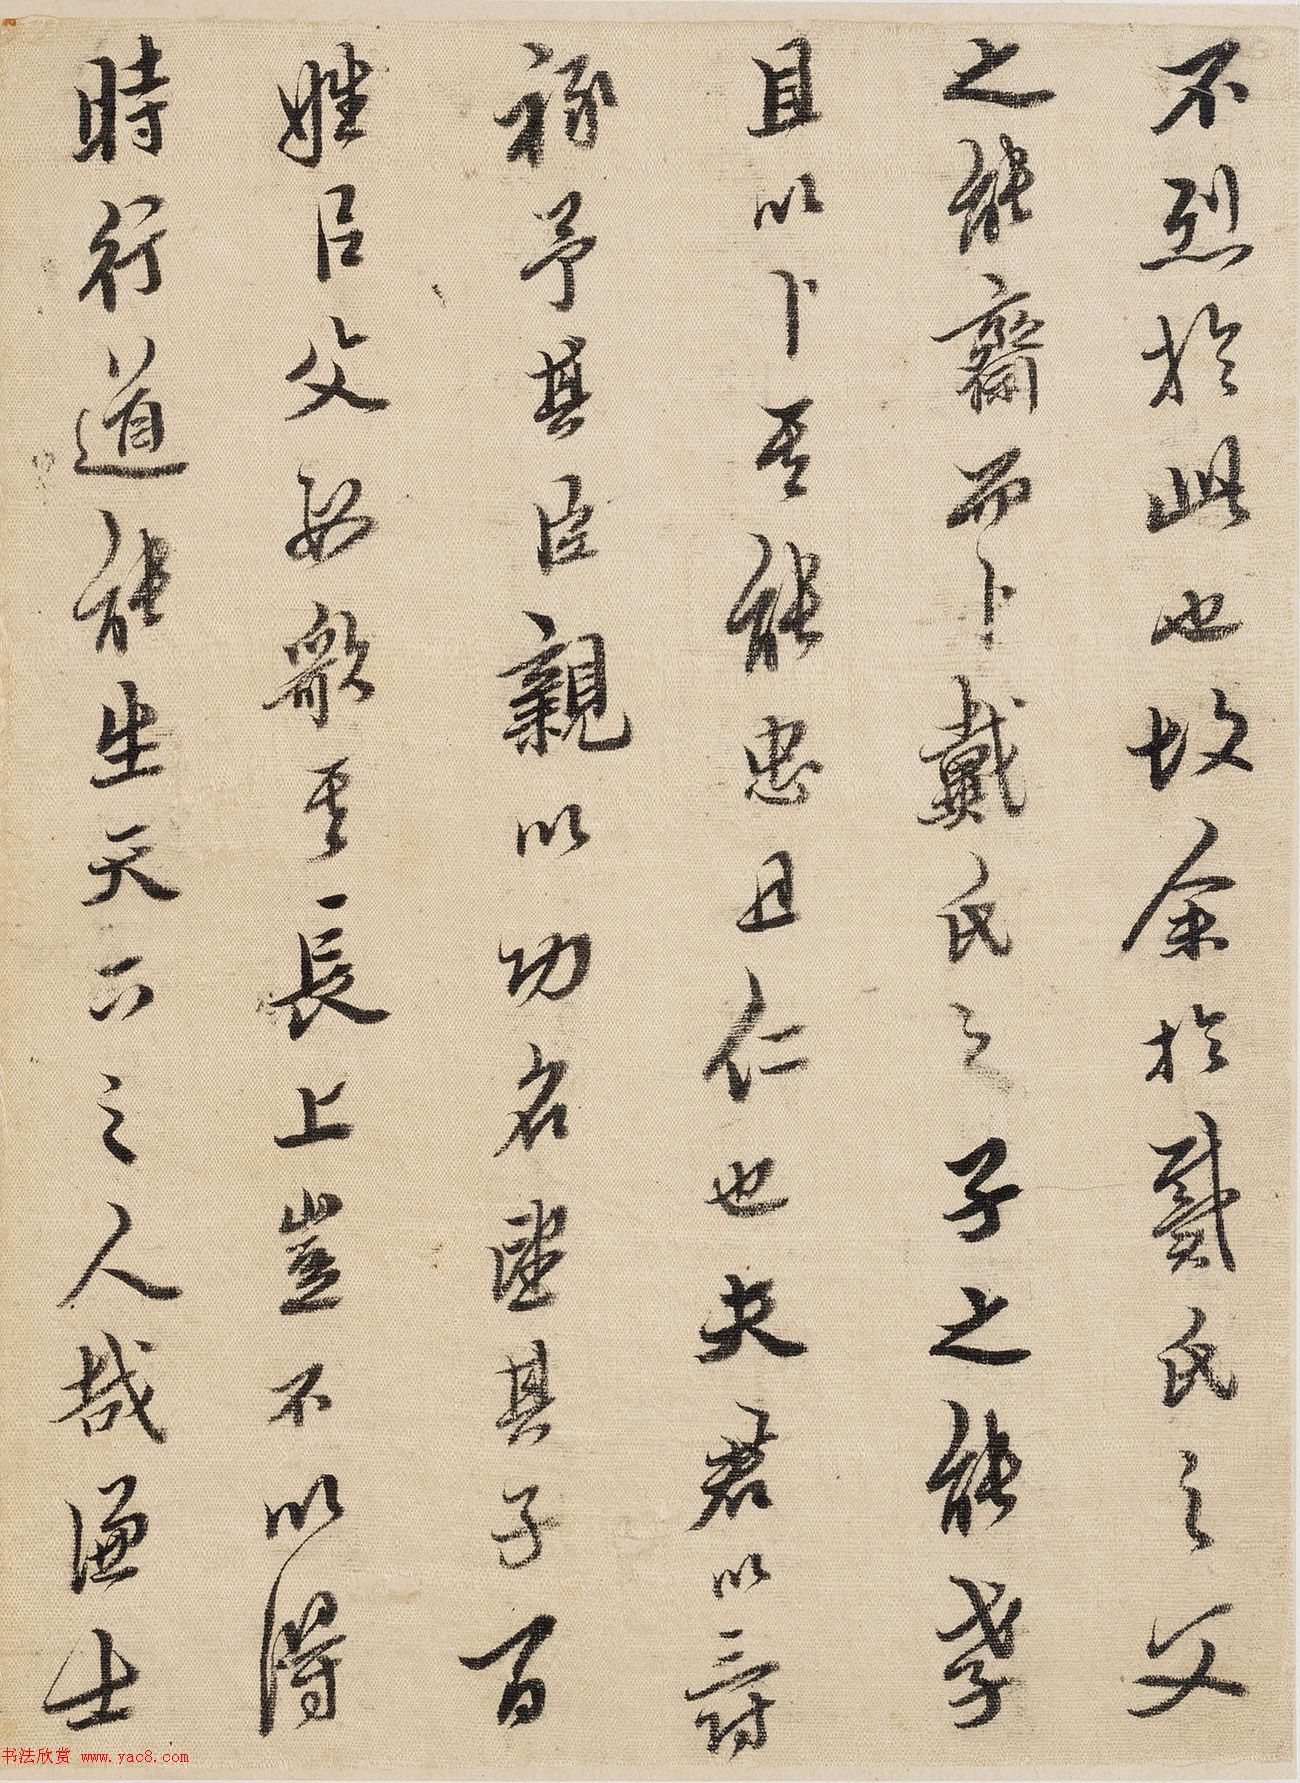 不烈於此也故余於戴氏之父
之能齋而卜戴氏之子之能孝
且以卜其能忠且仁也夫君以壽
祿予其臣親以功名望其子百
姓臣父母歌其長上豈不以得
時行道能生天下之人哉謹士
书法欣赏 www.yac8.com